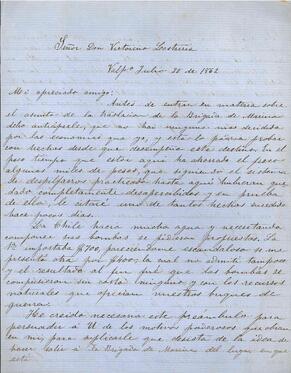 Señor Don Victorino Lastarria
Valpº Julio 22 de 1862
Mi apreciado amigo:
Antes de entrar en materia sobre
el asunto de la traslacion de la Brigada de Marina
debo anticiparle, que no hai ninguno mas decidido
por las economias que yo, i esto lo podria probar
con hechos desde que desempeño este destino. En el
poco tiempo que estoi aqui ha ahorrado el fisco
algunos miles de pesos, que siguiendo el sistema
de despilfarro practicado hasta aqui hubieran que
dado completamente desapercibidos i en prueba
de ello, le citaré uno de tantos hechos sucedido
hace pocos dias.
La Chile hacia mucha agua i necesitando
componer sus bombas se pidieron propuestas. La
1ª importaba $700, pareciendome escandalosa se me
presentó otra por $400; la cual no admití tampoco
i el resultado al fin fué que las bombas se
compusieron sin costo ninguno i con los recursos
naturales que ofrecian nuestros buques de
guerra.
He creido necesario este preámbulo para
persuadir a U de los motivos poderosos que obran
en mi para suplicarle que desista de la idea de
hacer salir a la Brigada de Marina del lugar en que
está